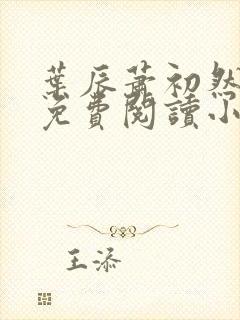 葉辰蕭初然
免費閱讀小
王添